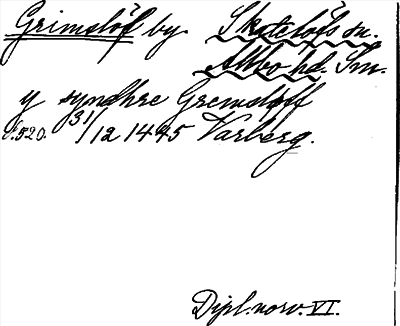 Grimslöf by. Skatelöfs sn.
Allbo hd. Sm.
y syndhre Gremsløff
s. 520. 31/12 1445 Varberg.
Dipl. norv. VI.